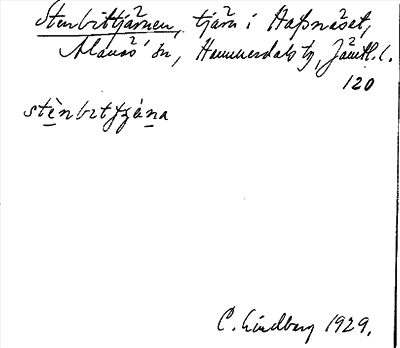 Stenbittjärnen, tjärn i Hafsnäset,
Alanäs' sn, Hammerdals tg, Jämtl. l.
120
stènbɩtʃʃä̀na
C. Lindberg 1929.